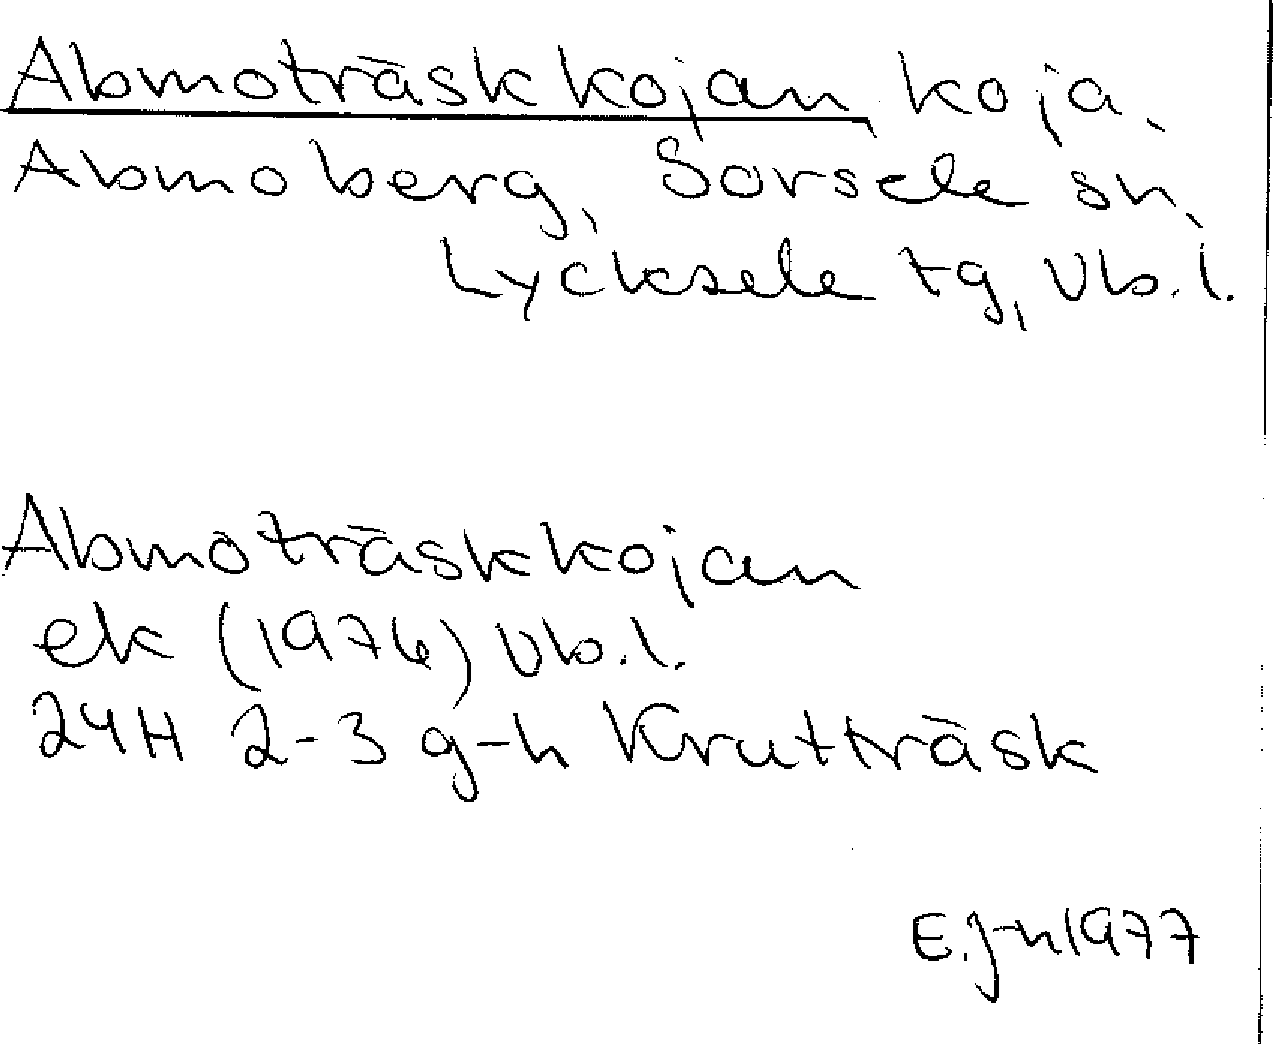 Abmoträskkojan koja,
Abmoberg, Sorsele sn,
Lycksele tg, Vb.l.
Abmoträskkojan
ek (1976) Vb.l.
24H 2-3 g-h Krutträsk
E.J-n 1977